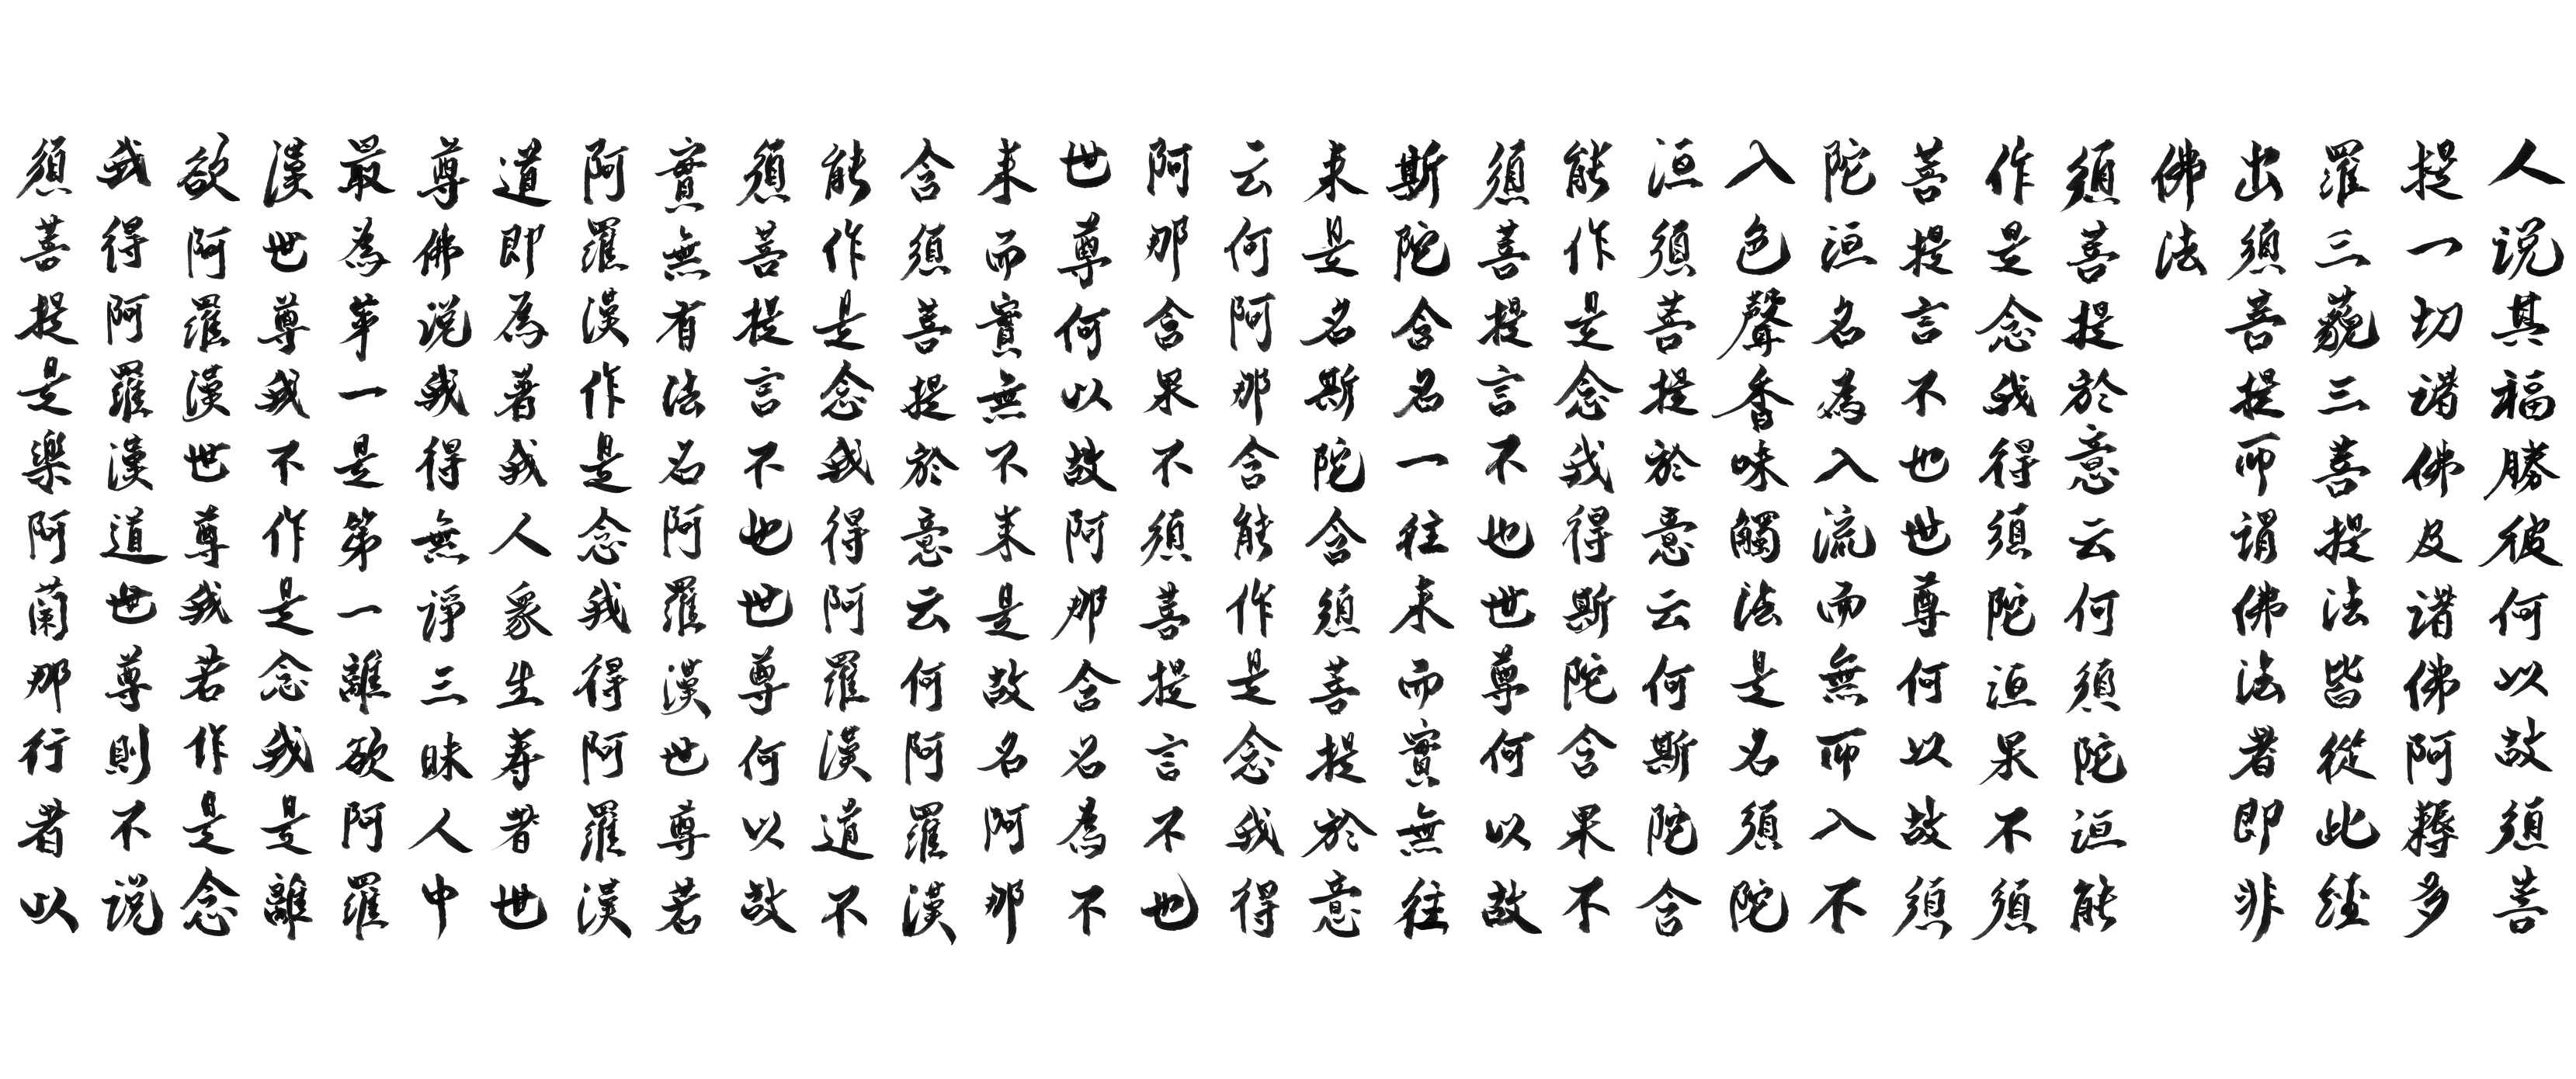 人说其福勝彼何以故須菩
提一切諸佛及諸佛阿耨多
羅三藐三菩提法皆從此經
出須菩提所謂佛法者即非
佛法
須菩提於意云何須陀洹能
作是念我得須陀洹果不須
菩提言不也世尊何以故須
陀洹名為入流而無所入不
入色聲香味觸法是名須陀
洹須菩提於意云何斯陀含
能作是念我得斯陀含果不
須菩提言不也世尊何以故
斯陀含名一往来而實無往
来是名斯陀含須菩提於意
云何阿那含能作是念我得
阿那含果不須菩提言不也
世尊何以故阿那含名為不
来而實無不来是故名阿那
含須菩提於意云何阿羅漢
能作是念我得阿羅漢道不
須菩提言不也世尊何以故
實無有法名阿羅漢世尊若
阿羅漢作是念我得阿羅漢
道即為著我人眾生寿者世
尊佛说我得無諍三昧人中
最為第一是第一離欲阿羅
漢世尊我不作是念我是離
欲阿羅漢世尊我若作是念
我得阿羅漢道世尊則不说
須菩提是樂阿蘭那行者以